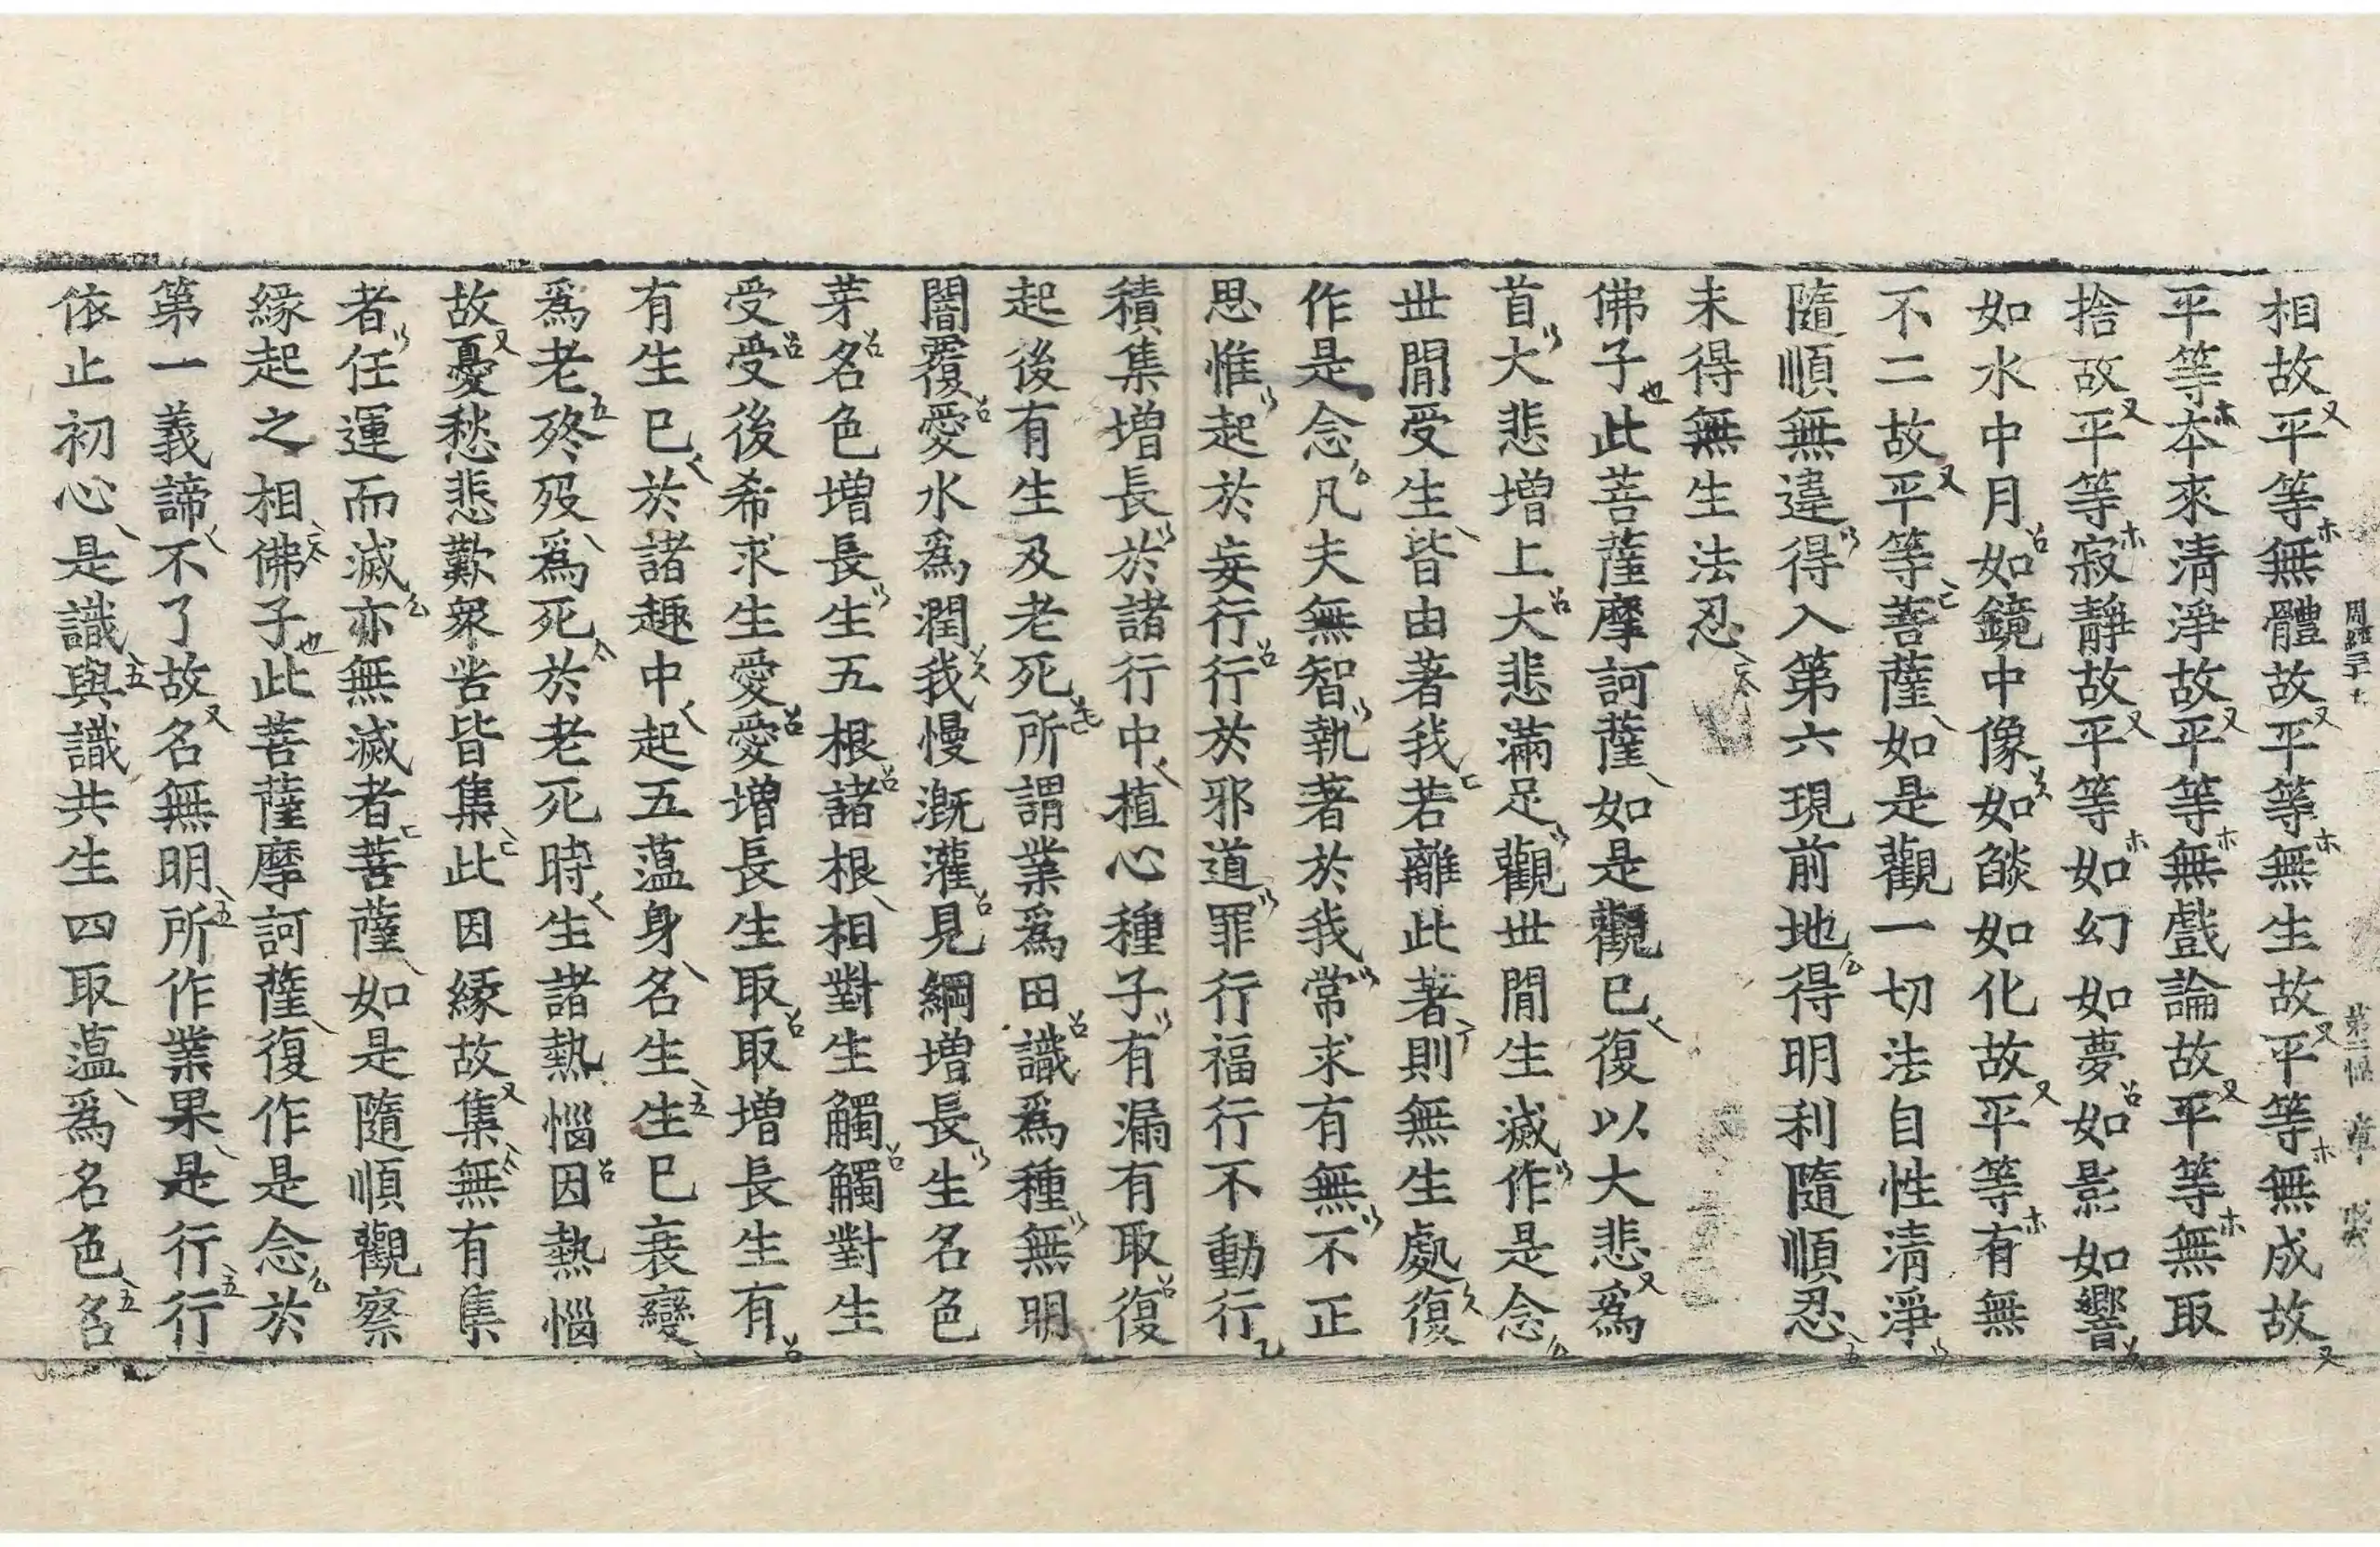 相故平等無體故平等無生故平等無成故
平等本來清淨故平等無戲論故平等無取
捨故平等寂靜故平等如幻如夢如影如響
如水中月如鏡中像如燄如化故平等有無
不二故平等菩薩如是觀一切法自性清淨
隨順無違得入第六現前地得明利隨順忍
未得無生法忍
佛子此菩薩摩訶薩如是觀已復以大悲爲
首大悲增上大悲滿足觀世間生滅作是念
世間受生皆由著我若離此著則無生處復
作是念凡夫無智執著於我常求有無不正
思惟起於妄行行於邪道罪行福行不動行
積集增長於諸行中植心種子有漏有取復
起後有生及老死所謂業爲田識爲種無明
闇覆愛水爲潤我慢溉灌見網增長生名色
芽名色增長生五根諸根相對生觸觸對生
受受後希求生愛愛增長生取取增長生有
有生已於諸趣中起五蘊身名生生已衰變
爲老終歿爲死於老死時生諸熱惱因熱惱
故憂愁悲歎衆苦皆集此因緣故集無有集
者任運而滅亦無滅者菩薩如是隨順觀察
緣起之相佛子此菩薩摩訶薩復作是念於
第一義諦不了故名無明所作業果是行行
依止初心是識與識共生四取蘊爲名色名